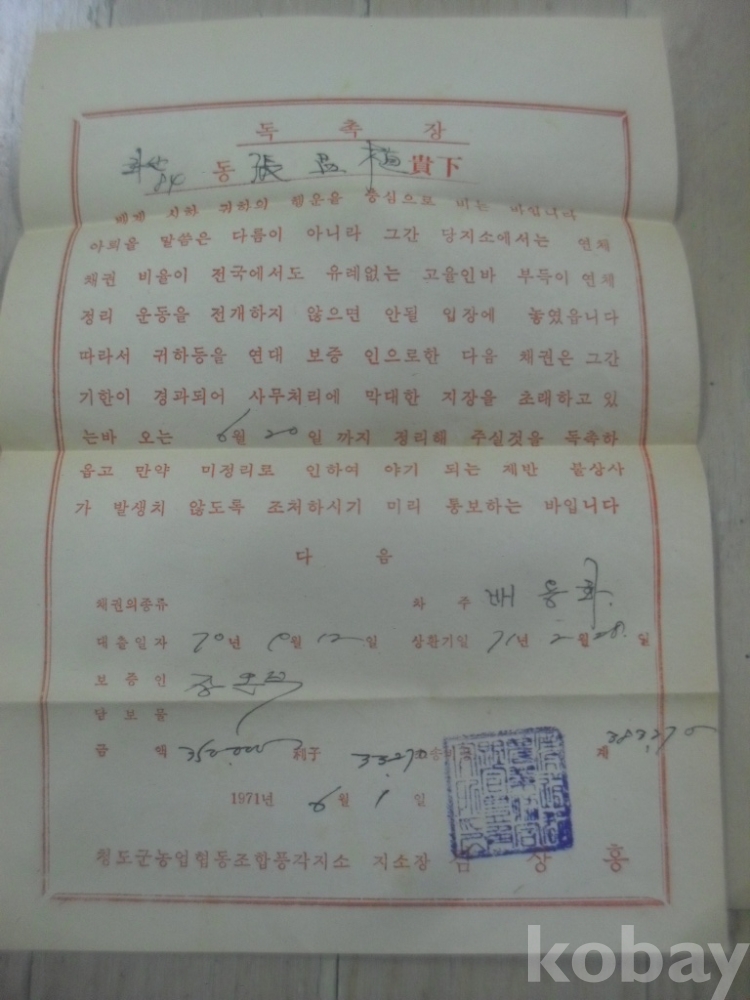 독촉장
동 張 植 貴下
배계 시하 귀하의 행운을 충심으로 비는 바입니다
아뢰올 말씀은 다름이 아니라 그간 당지소에서는 연체
채권 비율이 전국에서도 유례없는 고율인바 부득이 연체
정리 운동을 전개하지 않으면 안될 입장에 놓였읍니다
따라서 귀하등을 연대 보증 인으로한 다음 채권은 그간
기한이 경과되어 사무처리에 막대한 지장을 초래하고 있
는바 오는 6월 20일 까지 정리해 주실것을 독촉하
옵고 만약 미정리로 인하여 야기 되는 제반 불상사
가 발생치 않도록 조처하시기 미리 통보하는 바입니다
다음
채권의종류 차주 배용화
대출일자 70년 월 12일 상환기일 71년 2월 28일
보증인
담보물
금액 350,000 利子 33,270 계 383,270
1971년 6월 1일
청도군농업협동조합풍각지소 지소장 김상홍
kobay